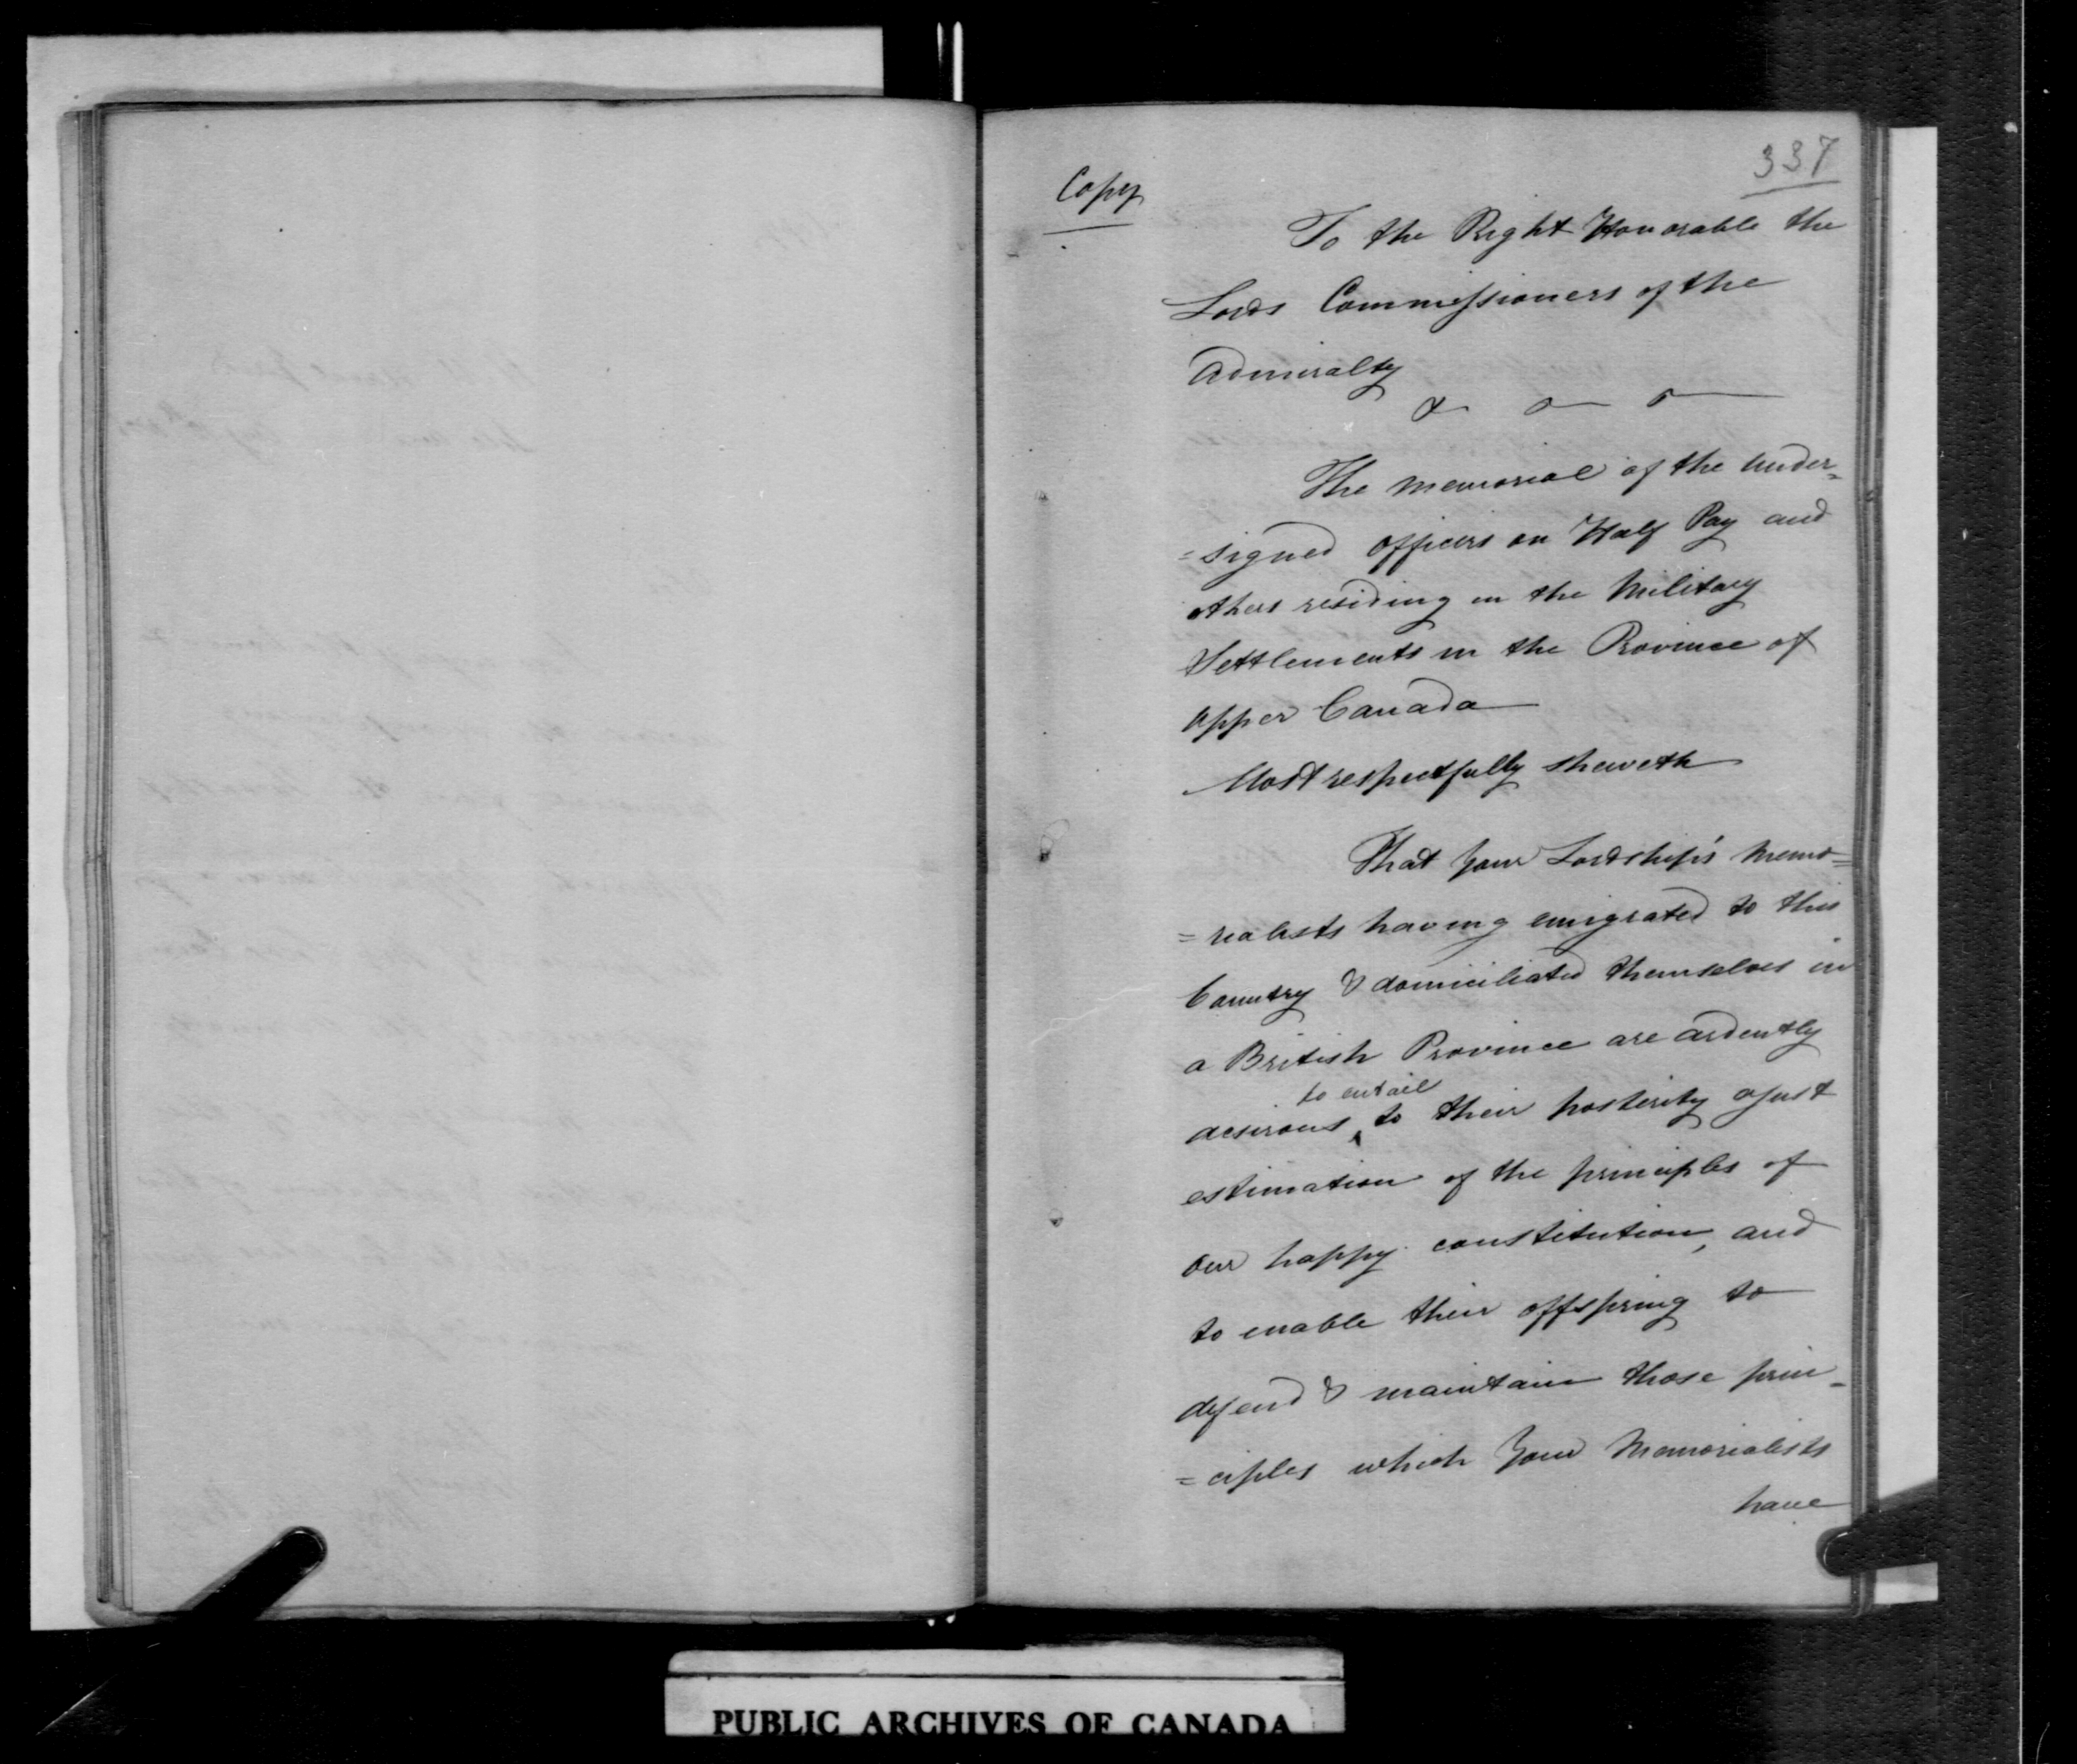 337
Copy
To the Right Honorable the
Lords Commissioners of the
Admiralty
& & &
The Memorial of the Under=
=signed officers on Half Pay and
others residing in the Military
Settlements in the Province of
Upper Canada
Most respectfully sheweth
That Your Lordship's Memo=
=rialists having emigrated to this
Country & domiciliated themselves in
a British Province are ardently
to entail
desirous ^ to their posterity a just
estimation of the principles of
our happy constitution, and
to enable their offspring to
defend & maintain those prin=
=ciples which Your Memorialists
have
PUBLIC ARCHIVES OF CANADA